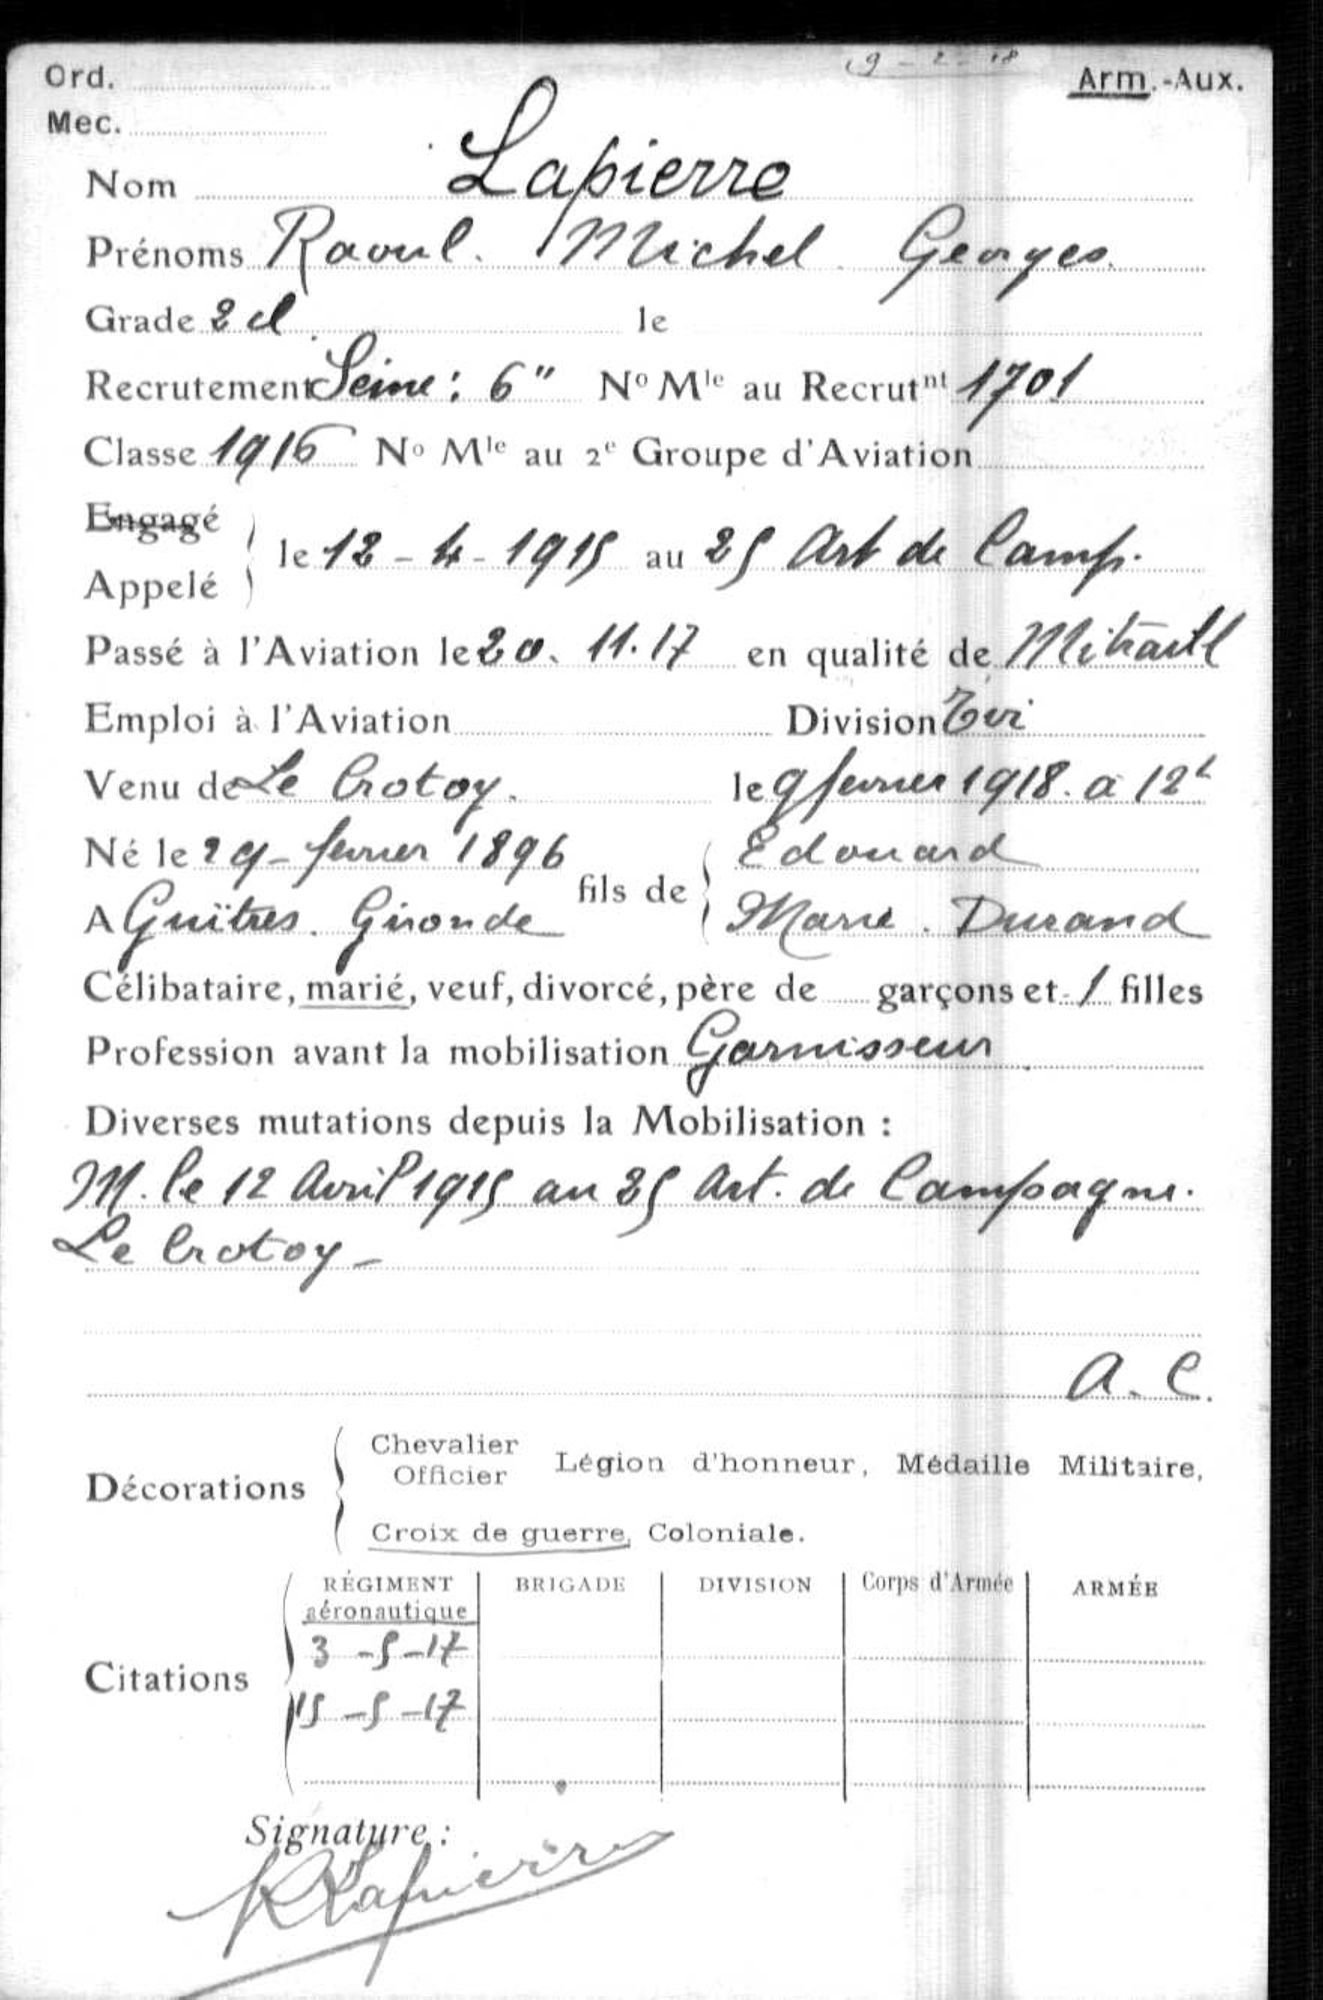 9-2-18
Ord. Arm.-Aux.
Mec.
Nom Lapierre
Prénoms Raoul. Michel. Georges.
Grade 2 cl. le
Recrutement Seine: 6" No Mle au Recrutnt 1701
Classe 1916 No Mle au 2e Groupe d'Aviation
Engagé
Appelé le 12-4-1915 au 25 Art de Camp.
Passé à l'Aviation le 20. 11. 17 en qualité de Mitraill
Emploi à l'Aviation Division
Venu de Le Crotoy. le 9 fevrier 1918. a 12h
Né le 29 - fevrier 1896 fils de Edouard
A Guîtres. Gironde Marie. Durand
Célibataire, marié, veuf, divorcé, père de garçons et 1 filles
Profession avant la mobilisation Garnisseur
Diverses mutations depuis la Mobilisation :
M. le 12 Avril 1915 au 25 Art. de Campagne.
Le Crotoy -
A. C.
Décorations Chevalier Officier Légion d'honneur, Médaille Militaire,
Croix de guerre, Coloniale.
RÉGIMENT aéronautique BRIGADE DIVISION Corps d'Armée ARMÉE
Citations 3-5-17
15-5-17
Signature :
RLapierre